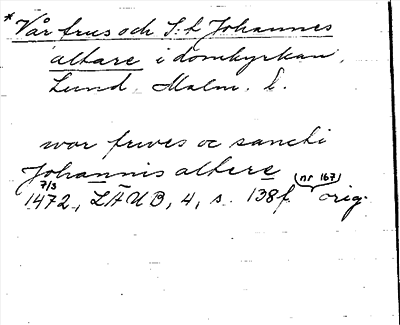 *Vår frus och S:t Johannes
altare i domkyrkan,
Lund, Malm. l.
wor frwes oc sancti
Johannis altere
7/3 (nr 167)
1472, LÄUB, 4, s. 138f. orig.